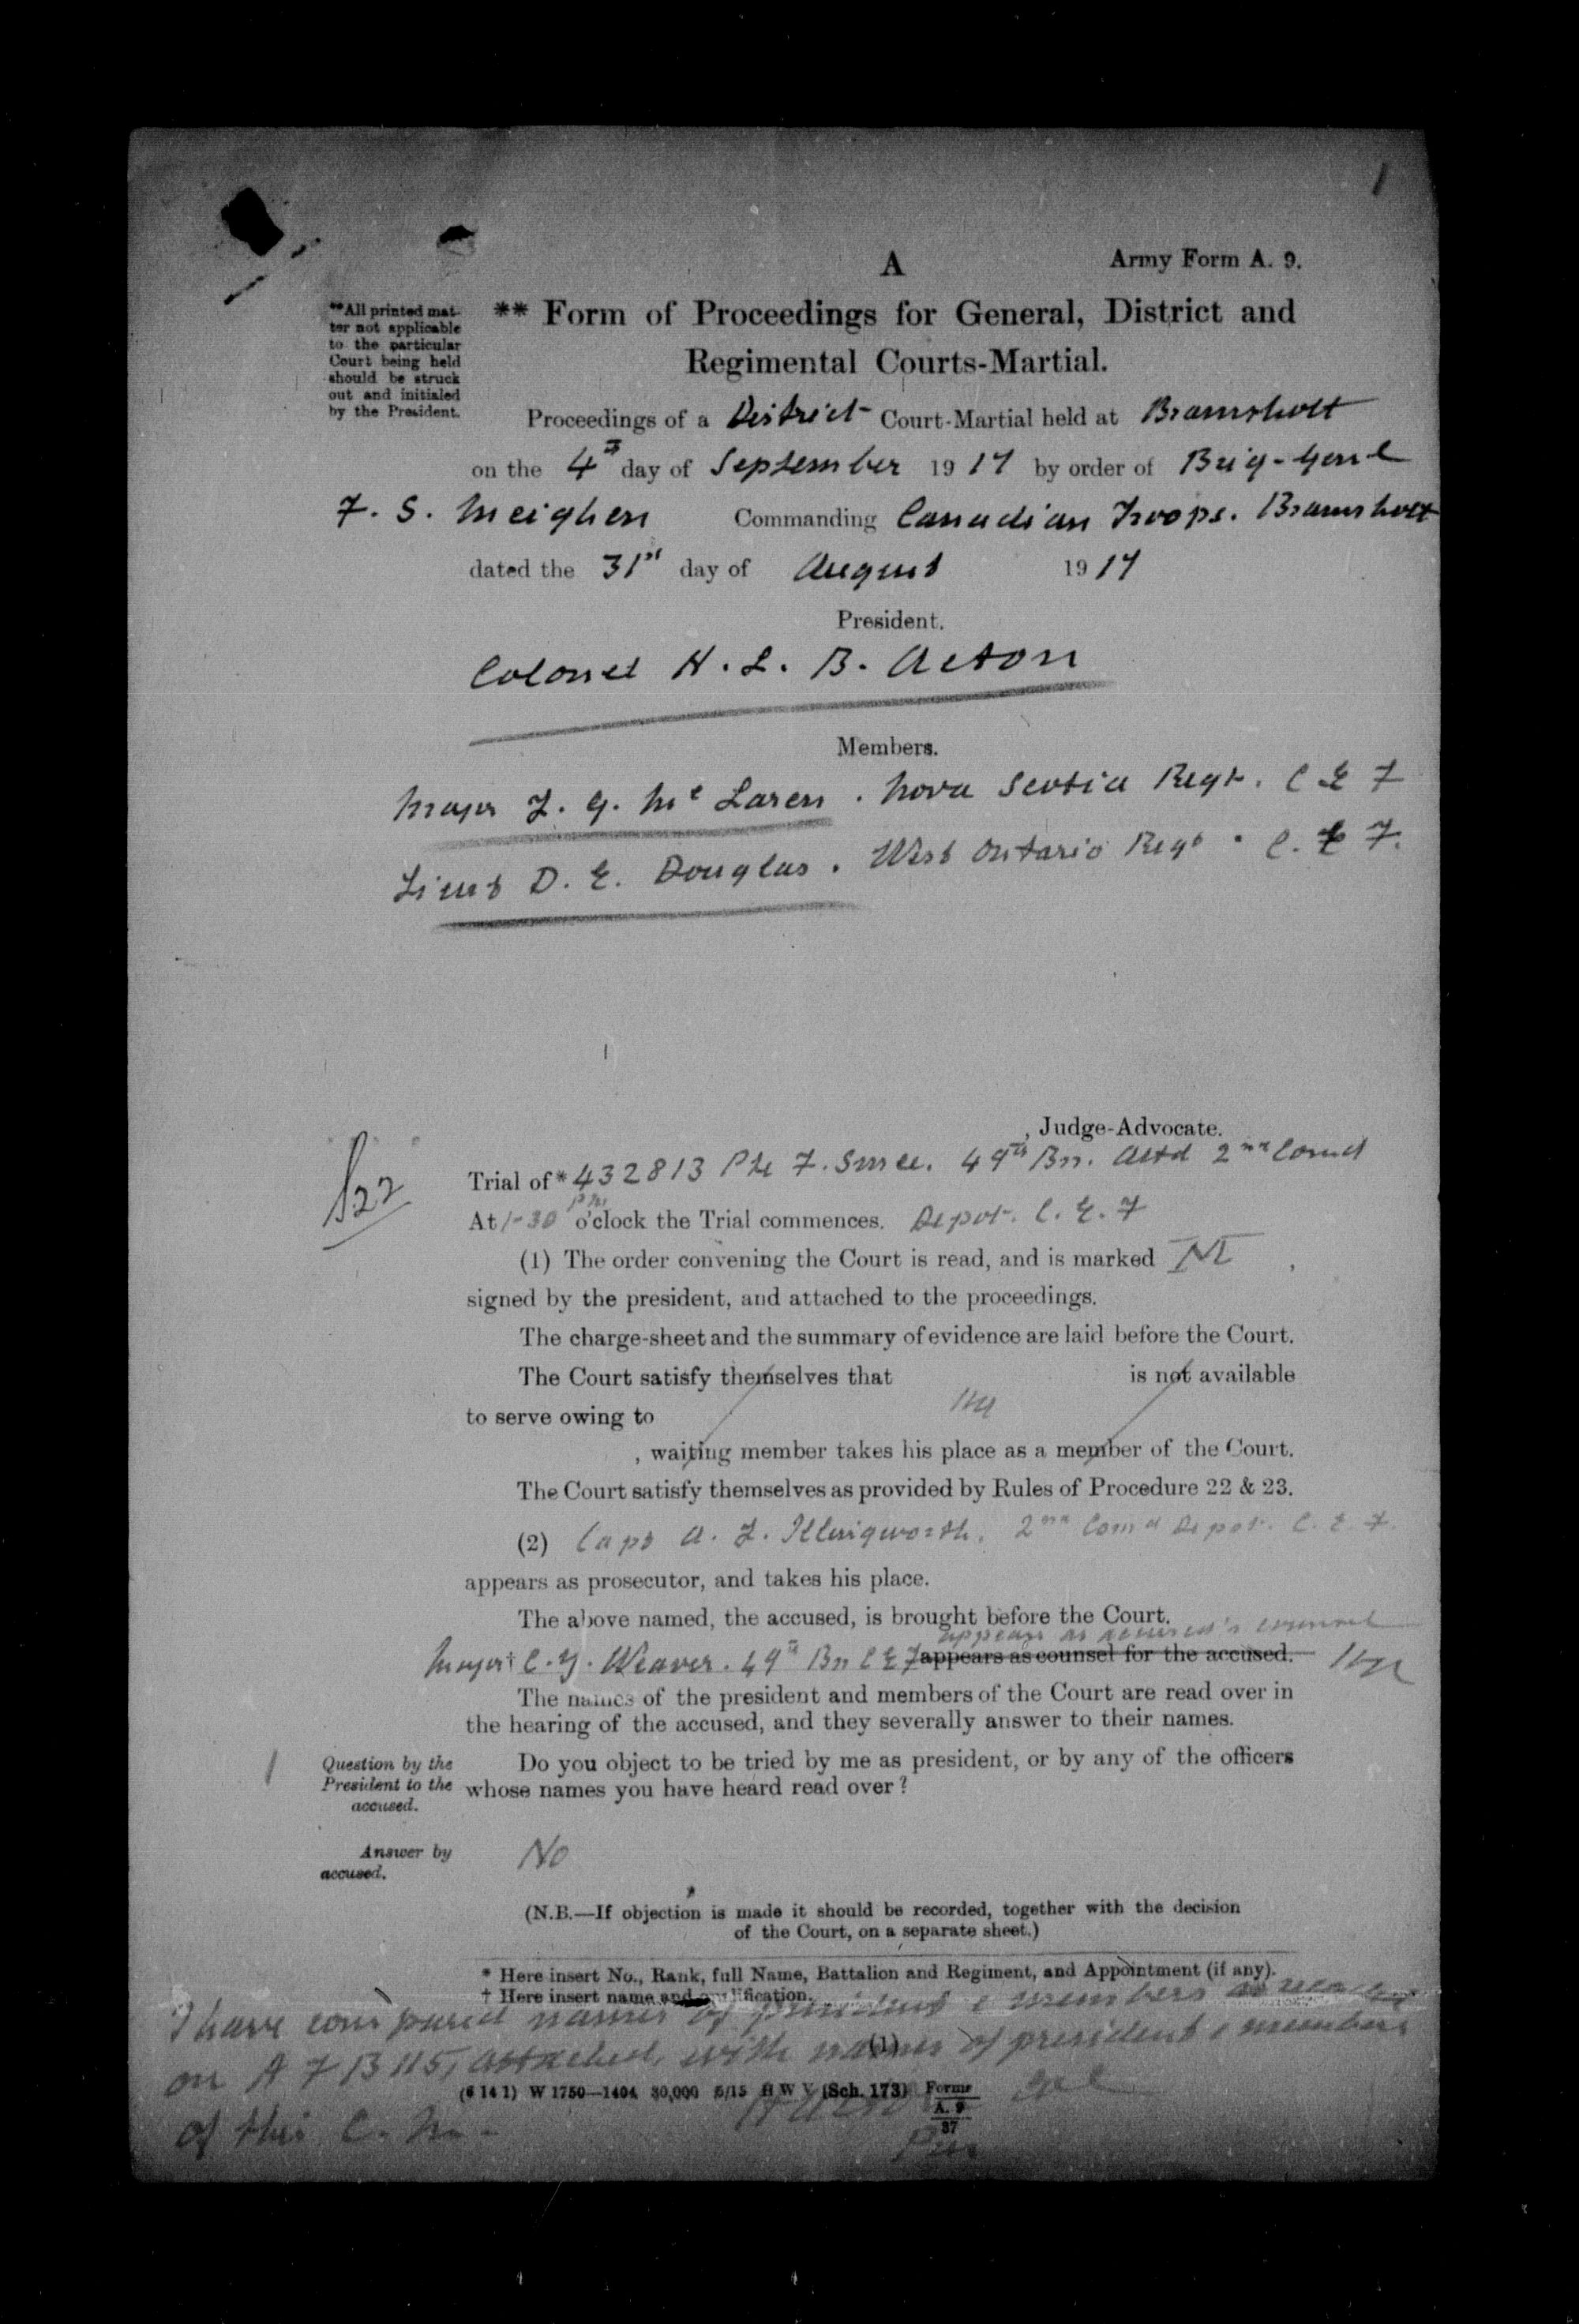 1
A
Army Form A. 9.
**All printed mat-
ter not applicable
to the particular
Court being held
should be struck
out and initialed
by the President.
** Form of Proceedings for General, District and
Regimental Courts-Martial.
Proceedings of a District Court-Martial held at Bramshott
on the 4th day of September 1917 by order of Brig-Genl
F. S. Meighen Commanding Canadian Troops. Bramshott
dated the 31st day of August 1917
President.
Colonel H. L. B. Acton
Members.
Major J. G. McLaren. Nova Scotia Regt. C E F
Lieut D. E. Douglas. West Ontario Regt. C. E F.
, Judge-Advocate.
Trial of * 432813 Pte F. Smee. 49th Bn. Attd 2nd Comd
At 1-30 pm o'clock the Trial commences. Depot. C. E. F
(1) The order convening the Court is read, and is marked
signed by the president, and attached to the proceedings.
The charge-sheet and the summary of evidence are laid before the Court.
The Court satisfy themselves that is not available
to serve owing to
, waiting member takes his place as a member of the Court.
The Court satisfy themselves as provided by Rules of Procedure 22 & 23.
(2) Capt A. L. Illingworth. 2nd Comd Depot. C. E F.
appears as prosecutor, and takes his place.
The above named, the accused, is brought before the Court.
appears as accused's counsel
Major † C. Y. Weaver. 49th Bn C E F appears as counsel for the accused.
The names of the president and members of the Court are read over in
the hearing of the accused, and they severally answer to their names.
Question by the
President to the
accused.
Do you object to be tried by me as president, or by any of the officers
whose names you have heard read over?
Answer by
accused.
No
(N.B.—If objection is made it should be recorded, together with the decision
of the Court, on a separate sheet.)
* Here insert No., Rank, full Name, Battalion and Regiment, and Appointment (if any).
† Here insert name and qualification.
I have compared names of president & members as
on A F B 115, attached, with names of president & members
(1)
(6 14 1) W 1750—1404 30,000 5/15 H W V (Sch. 173) Forms
A. 9
37
of this C. M.